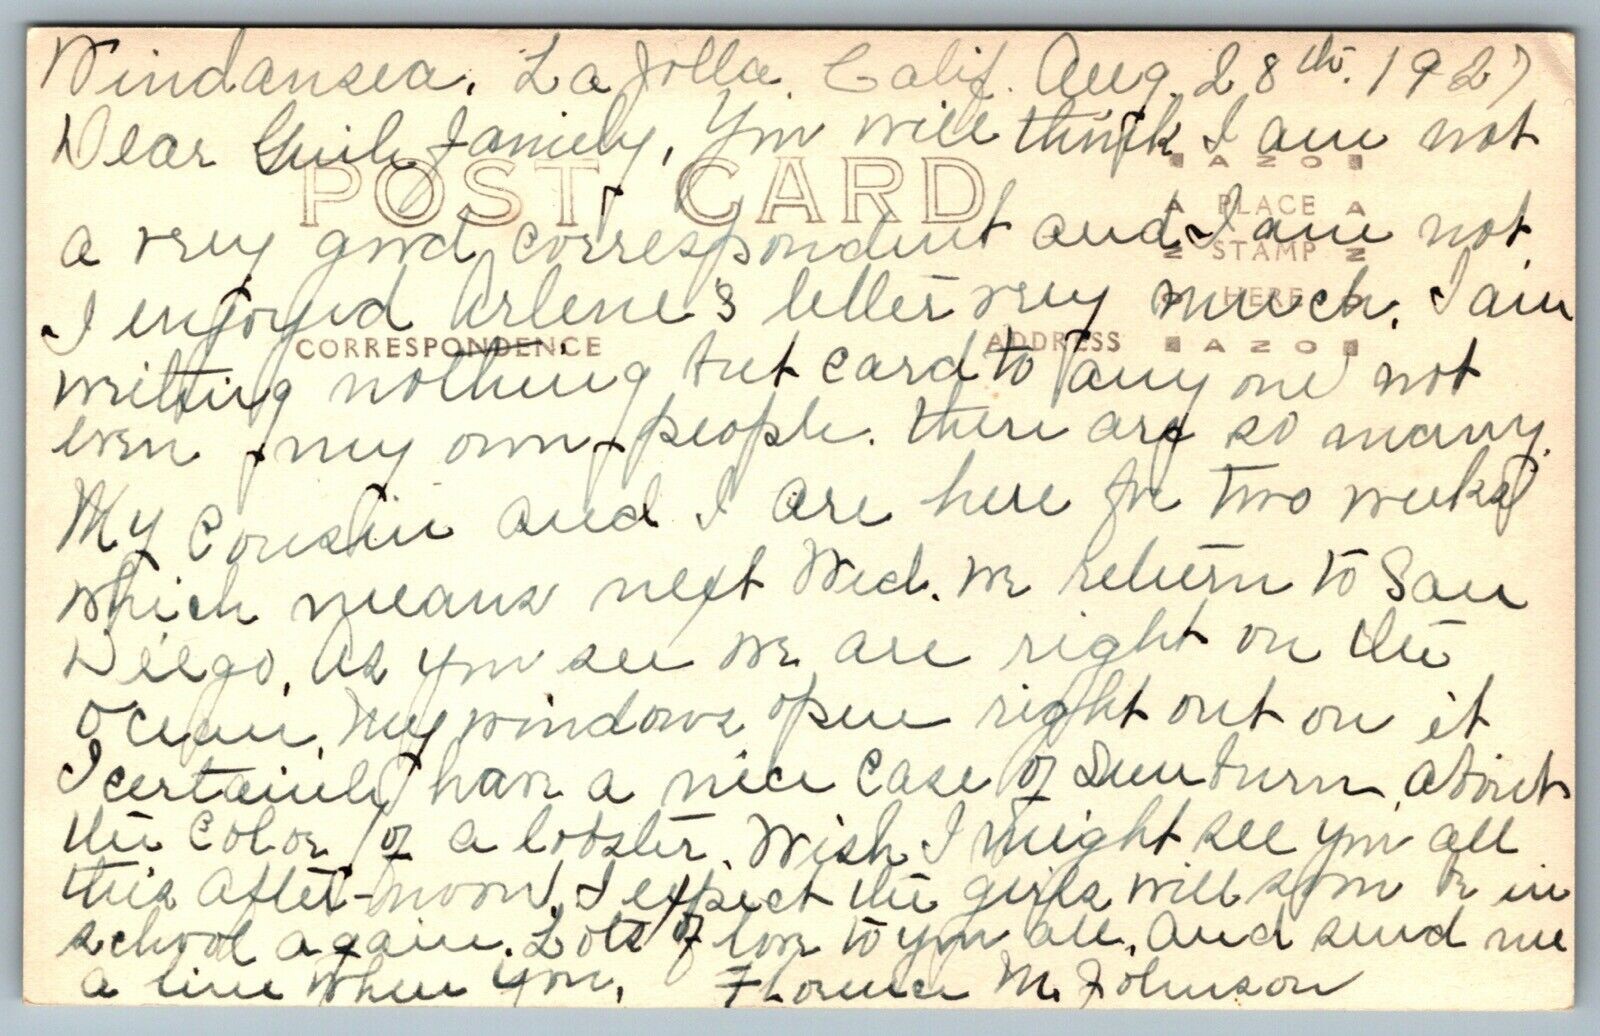 Windansea, La Jolla, Calif. Aug. 28th. 1927
Dear Guile Family, You will think I am not
POST CARD
AZO
PLACE
STAMP
HERE
AZO
a very good correspondent and I am not
I enjoyed Arlene's letter very much. I am
CORRESPONDENCE
ADDRESS
writing nothing but card to any one not
even my own people. there are so many.
My Cousin and I are here for two weeks
which means next Wed. we return to San
Diego. As you see we are right on the
Ocean. My windows open right out on it
I certainly have a nice case of Sun burn, about
the color of a lobster. Wish I might see you all
this after-noon. I expect the girls will soon be in
school again. Lots of love to you all. And send me
a line when you. Florence M. Johnson